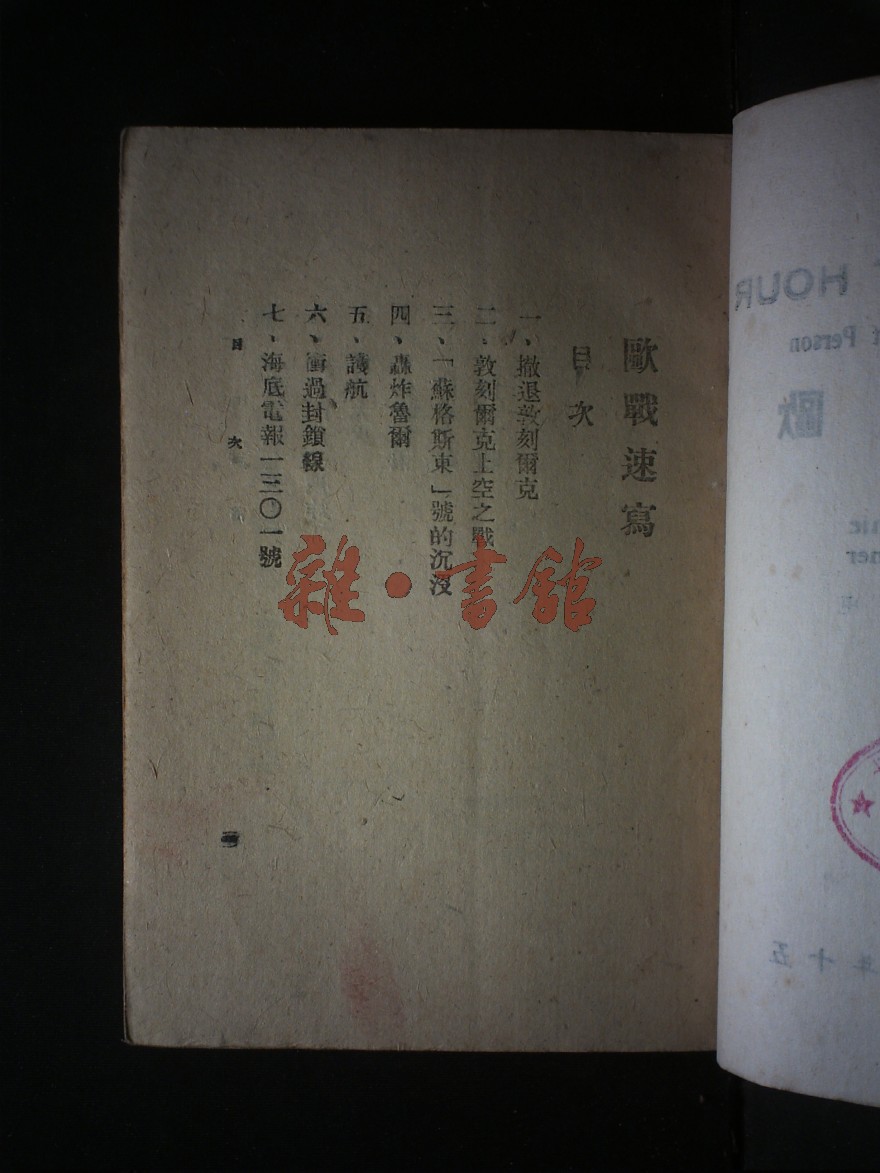 歐戰速寫
目次
一、撤退敦刻爾克
二、敦刻爾克上空之戰
三、「蘇格斯東」號的沉沒
四、轟炸魯爾
五、護航
六、衝過封鎖線
七、海底電報一三〇一號
目次
雜·書館
HOUR
Person
歐
年十五